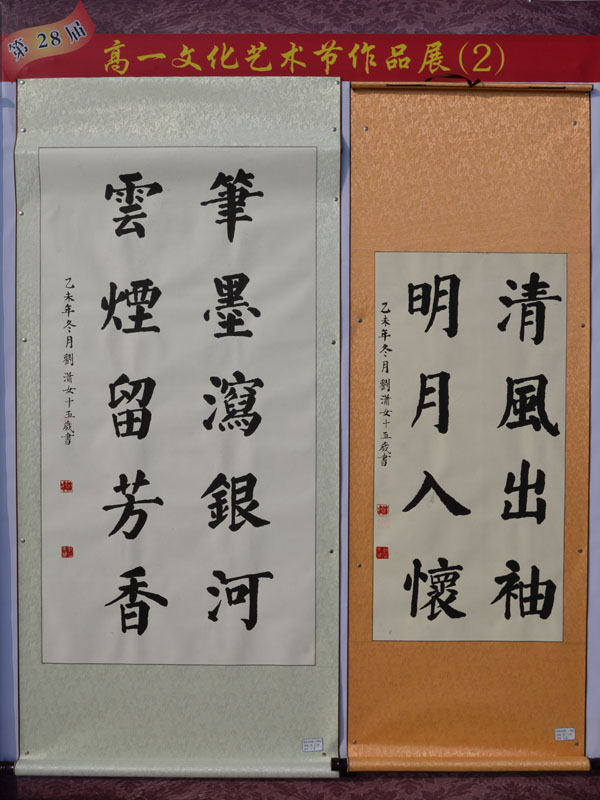 第28届
高一文化艺术节作品展(2)
筆墨瀉銀河
雲煙留芳香
乙未年冬月劉瀟女十五歲書
清風出袖
明月入懷
乙未年冬月劉瀟女十五歲書